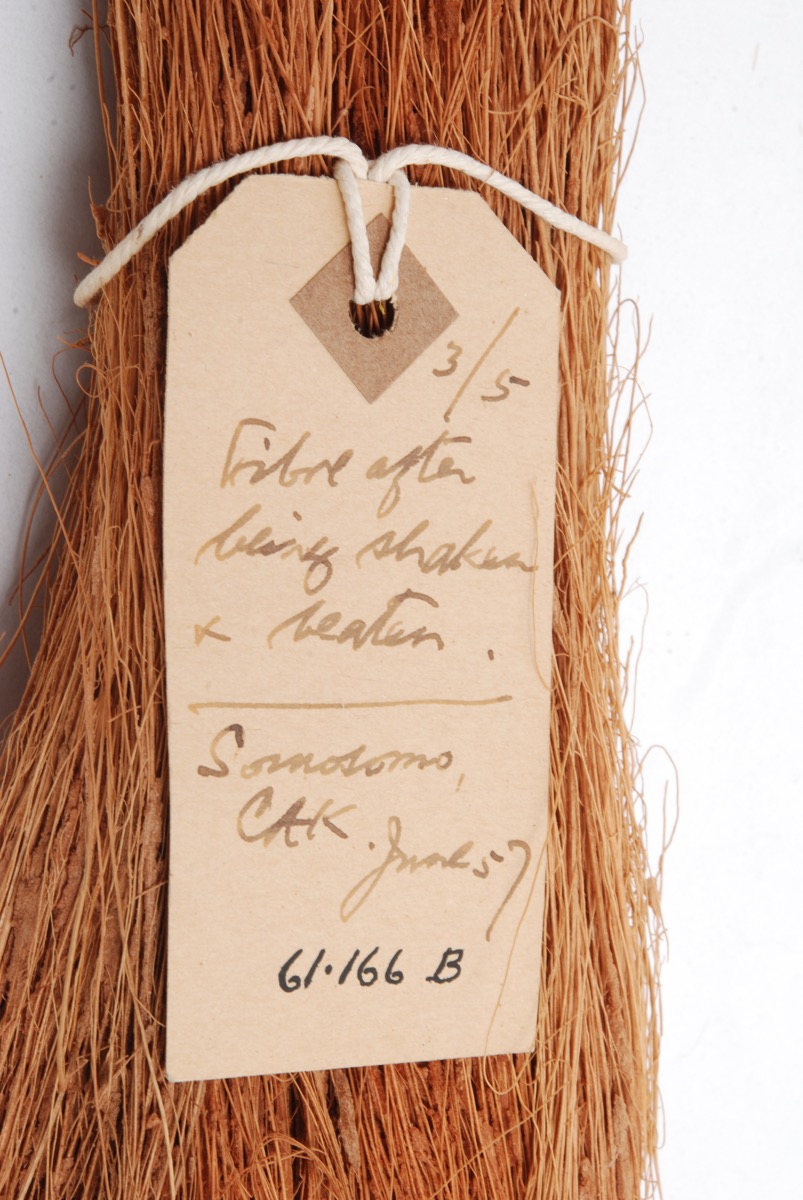 3/5
Fibre after
being shaken
& beaten.
Somosomo,
CAK. June 57
61.166 B